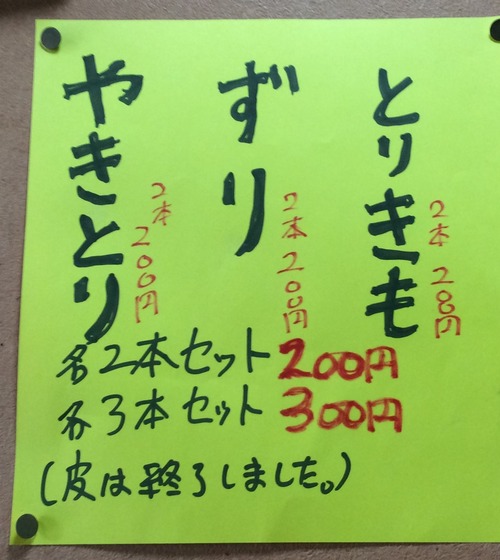 とりきも
2本 200円
ずり
2本 200円
やきとり
2本 200円
各2本セット 200円
各3本セット 300円
(皮は終了しました。)